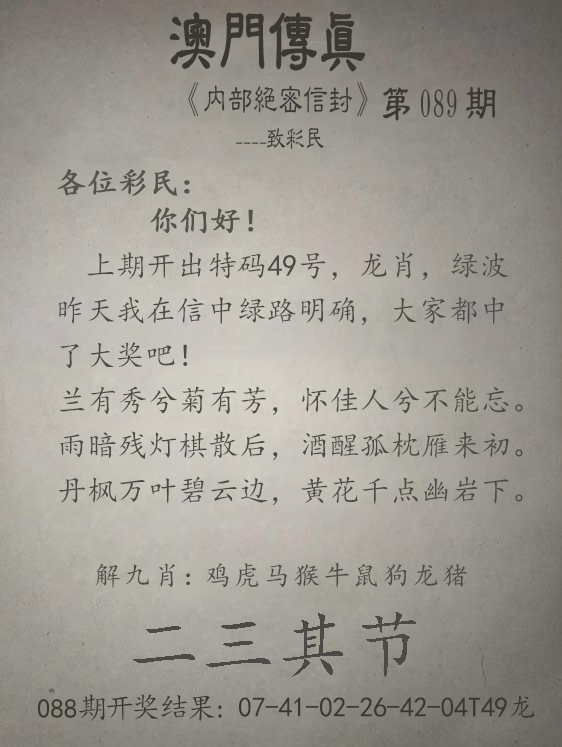 澳門傳真
《内部絕密信封》第089期
----致彩民
各位彩民：
你们好！
上期开出特码49号，龙肖，绿波
昨天我在信中绿路明确，大家都中
了大奖吧！
兰有秀兮菊有芳，怀佳人兮不能忘。
雨暗残灯棋散后，酒醒孤枕雁来初。
丹枫万叶碧云边，黄花千点幽岩下。
解九肖：鸡虎马猴牛鼠狗龙猪
二三其节
088期开奖结果：07-41-02-26-42-04T49龙